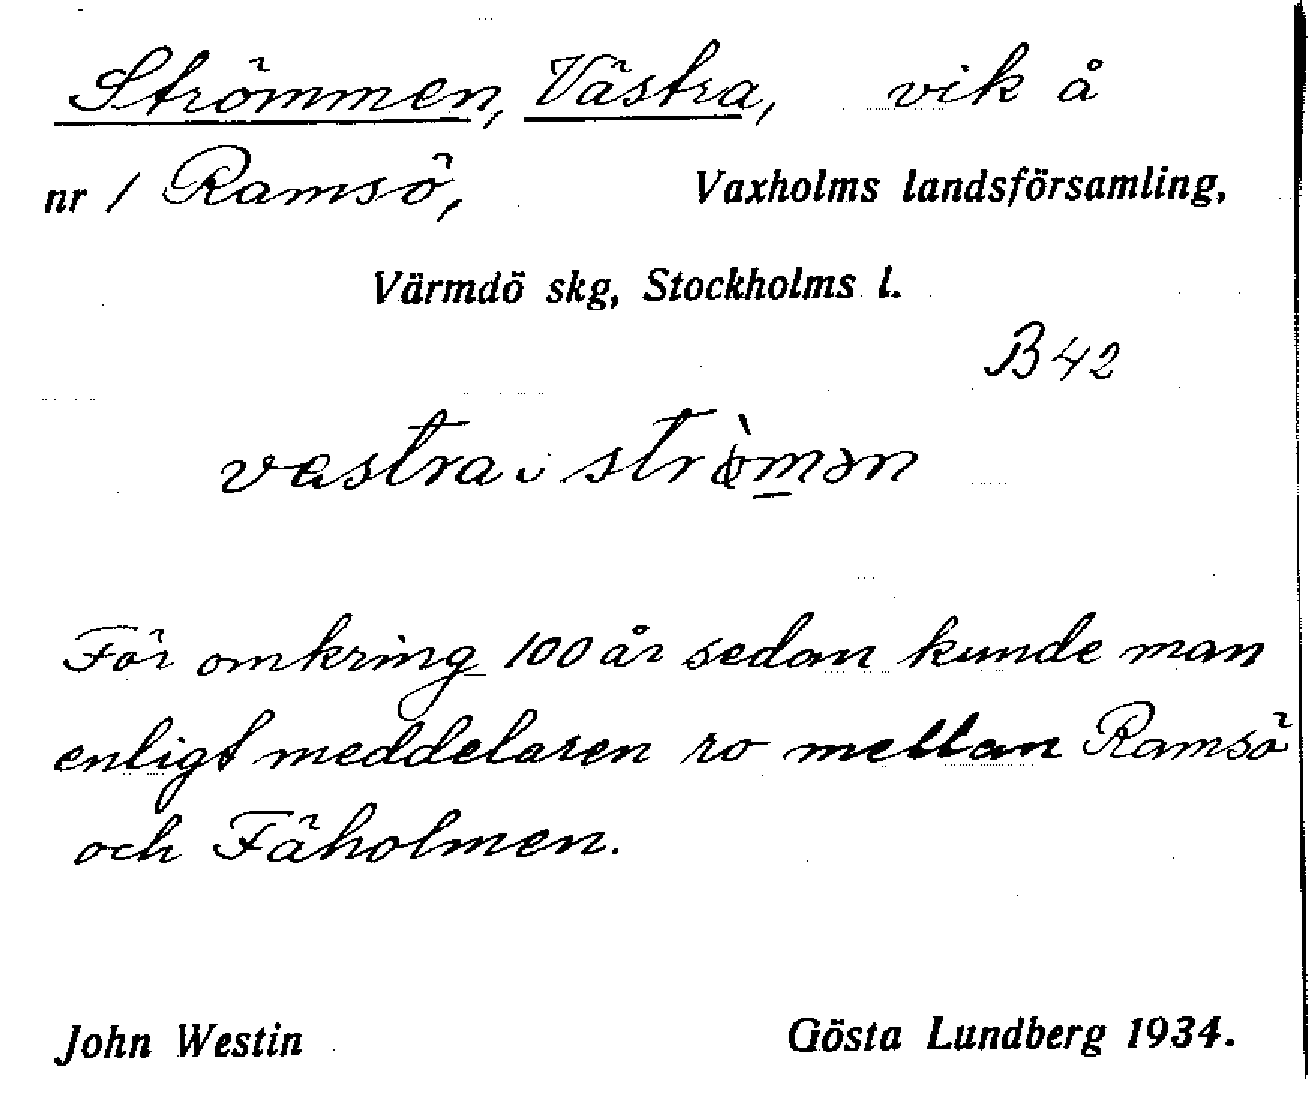 Strömmen, Västra, vik å
nr 1 Ramsö, Vaxholms landsförsamling,
Värmdö skg, Stockholms l.
B 42
För omkring 100 år sedan kunde man
enligt meddelaren ro mellan Ramsö
och Fåholmen.
John Westin Gösta Lundberg 1934.